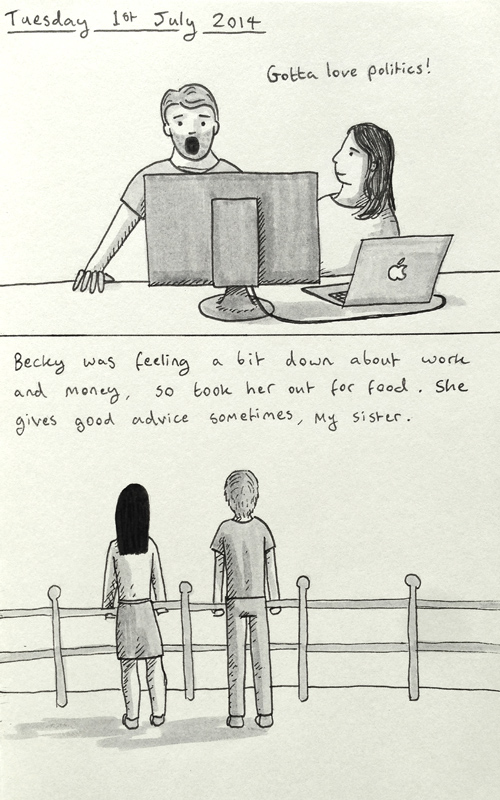 Tuesday 1st July 2014
Gotta love politics!
Becky was feeling a bit down about work
and money, so took her out for food. She
gives good advice sometimes, my sister.